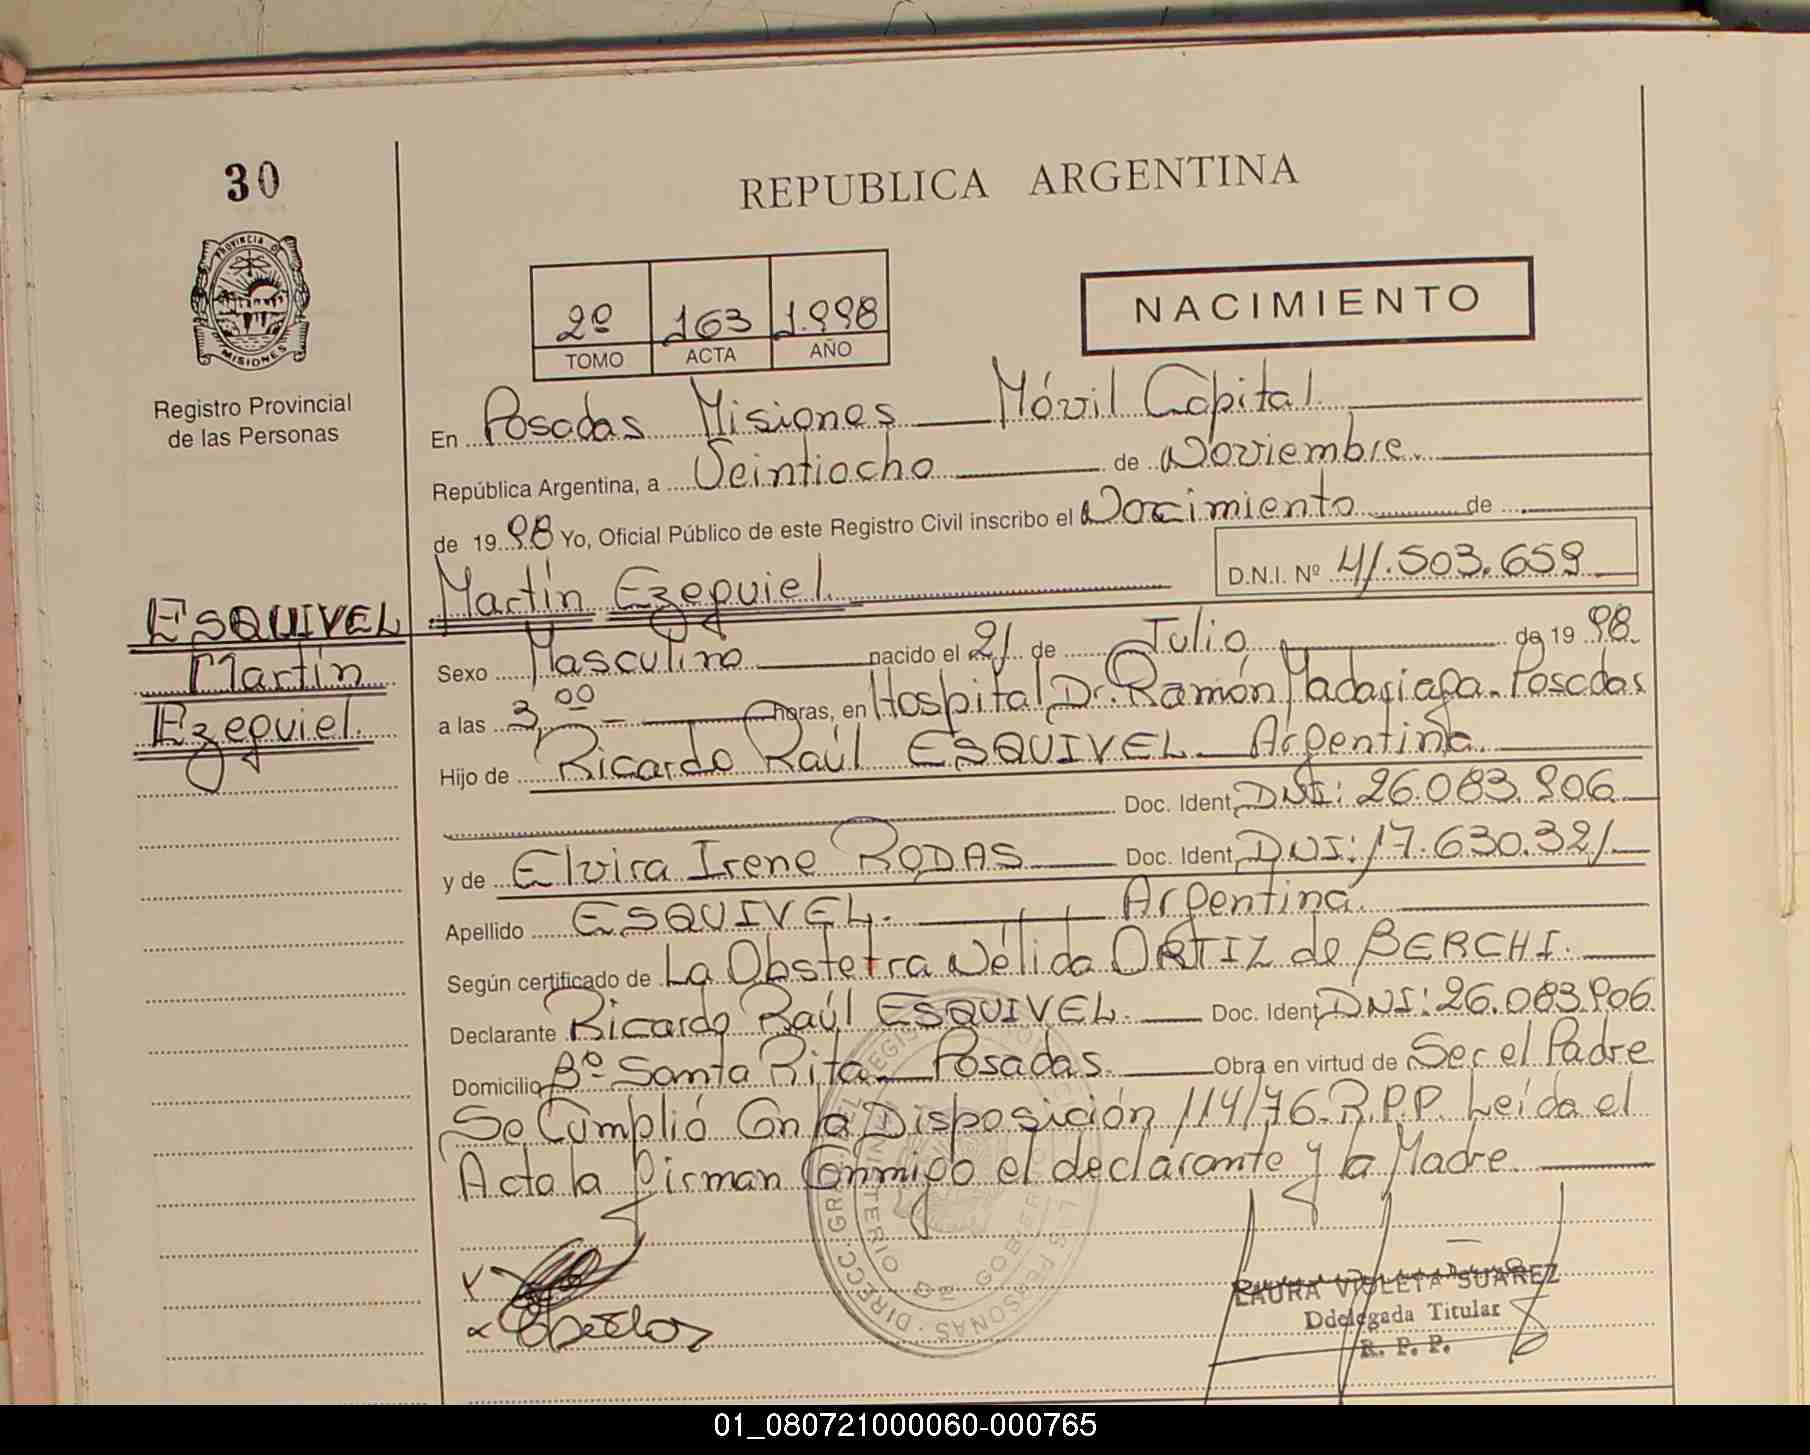 30
REPUBLICA ARGENTINA
PROVINCIA DE
MISIONES
Registro Provincial
de las Personas
2º 163 1.998
TOMO ACTA AÑO
NACIMIENTO
En Posadas Misiones Móvil Capital.
República Argentina, a Veintiocho de Noviembre.
de 19 98 Yo, Oficial Público de este Registro Civil inscribo el Nacimiento de
Martín Ezequiel. D.N.I. Nº 41.503.659
ESQUIVEL
Martín
Ezequiel.
Sexo Masculino nacido el 21 de Julio de 19 98.
a las 3,00 horas, en Hospital Dr. Ramón Madariaga. Posadas
Hijo de Ricardo Raúl ESQUIVEL Argentina.
Doc. Ident. DNI: 26.083.906
y de Elvira Irene RODAS Doc. Ident. DNI: 17.630.321
Apellido ESQUIVEL. Argentina.
Según certificado de La Obstetra Nélida ORTIZ de BERCHI.
Declarante Ricardo Raúl ESQUIVEL. Doc. Ident. DNI: 26.083.906.
Domicilio Bº Santa Rita Posadas. Obra en virtud de Ser el Padre
Se Cumplió Con la Disposición 114/76. R.P.P. Leída el
Acta la firman Conmigo el declarante y la Madre.
LAURA VIOLETA SUAREZ
Ddelegada Titular
R. P. P.
01_080721000060-000765